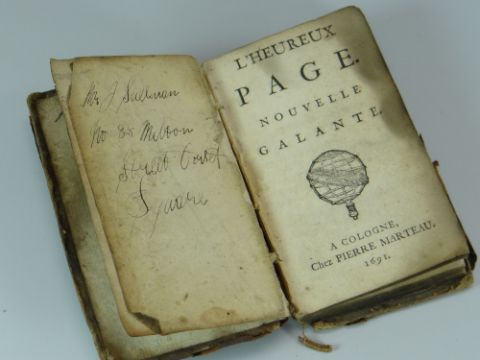 Mr J Sullman
No 35 Milton
Street
Square
L'HEUREUX
PAGE.
NOUVELLE
GALANTE.
A COLOGNE,
Chez PIERRE MARTEAU.
1691.